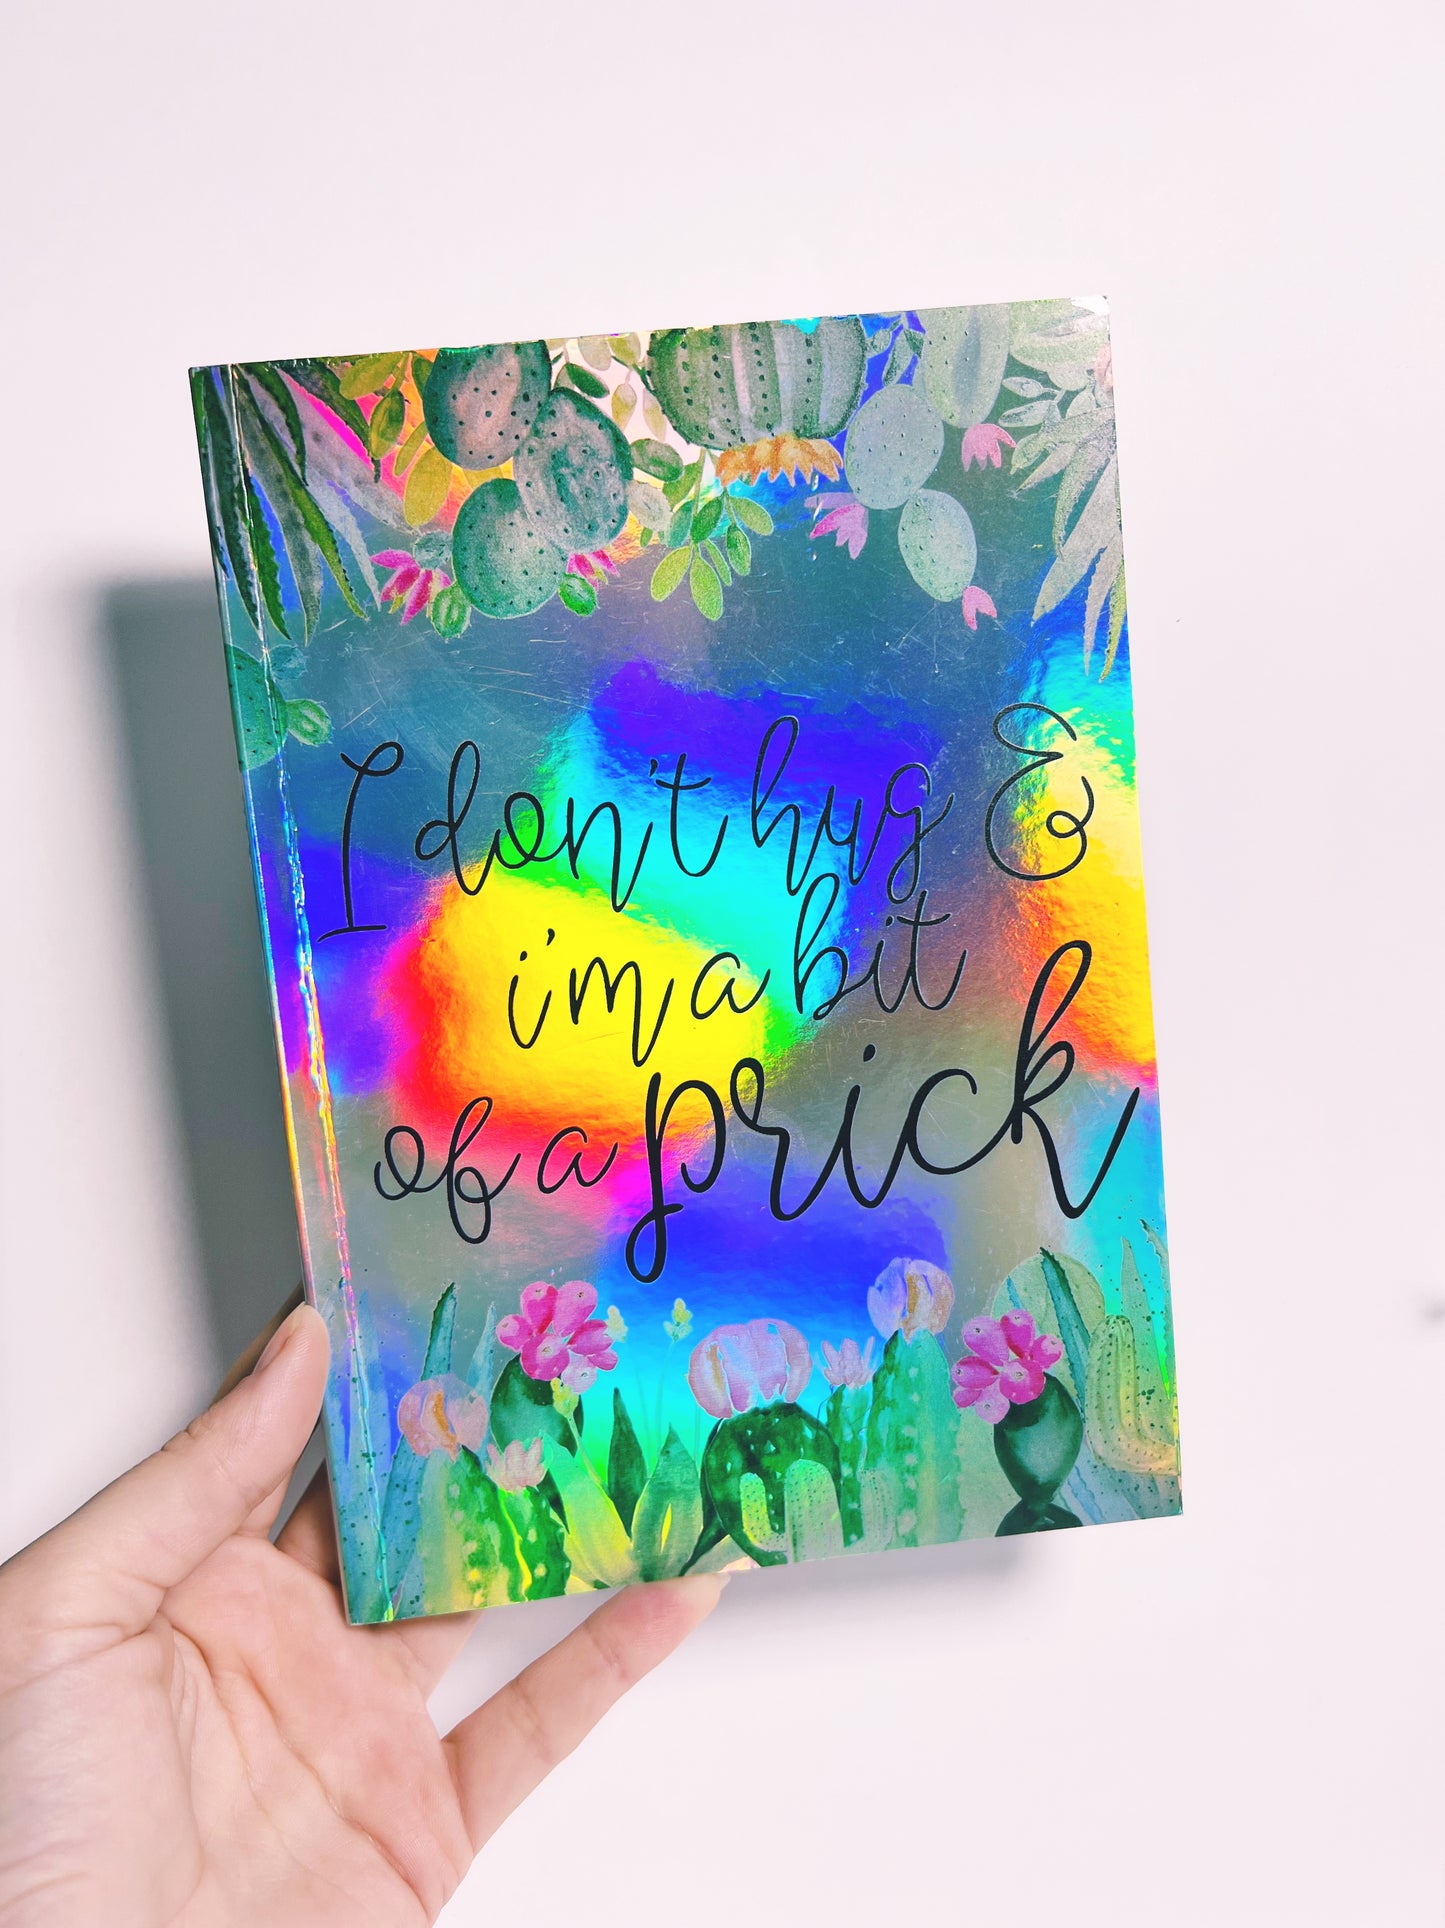 I don't hug &
i'm a bit
of a prick